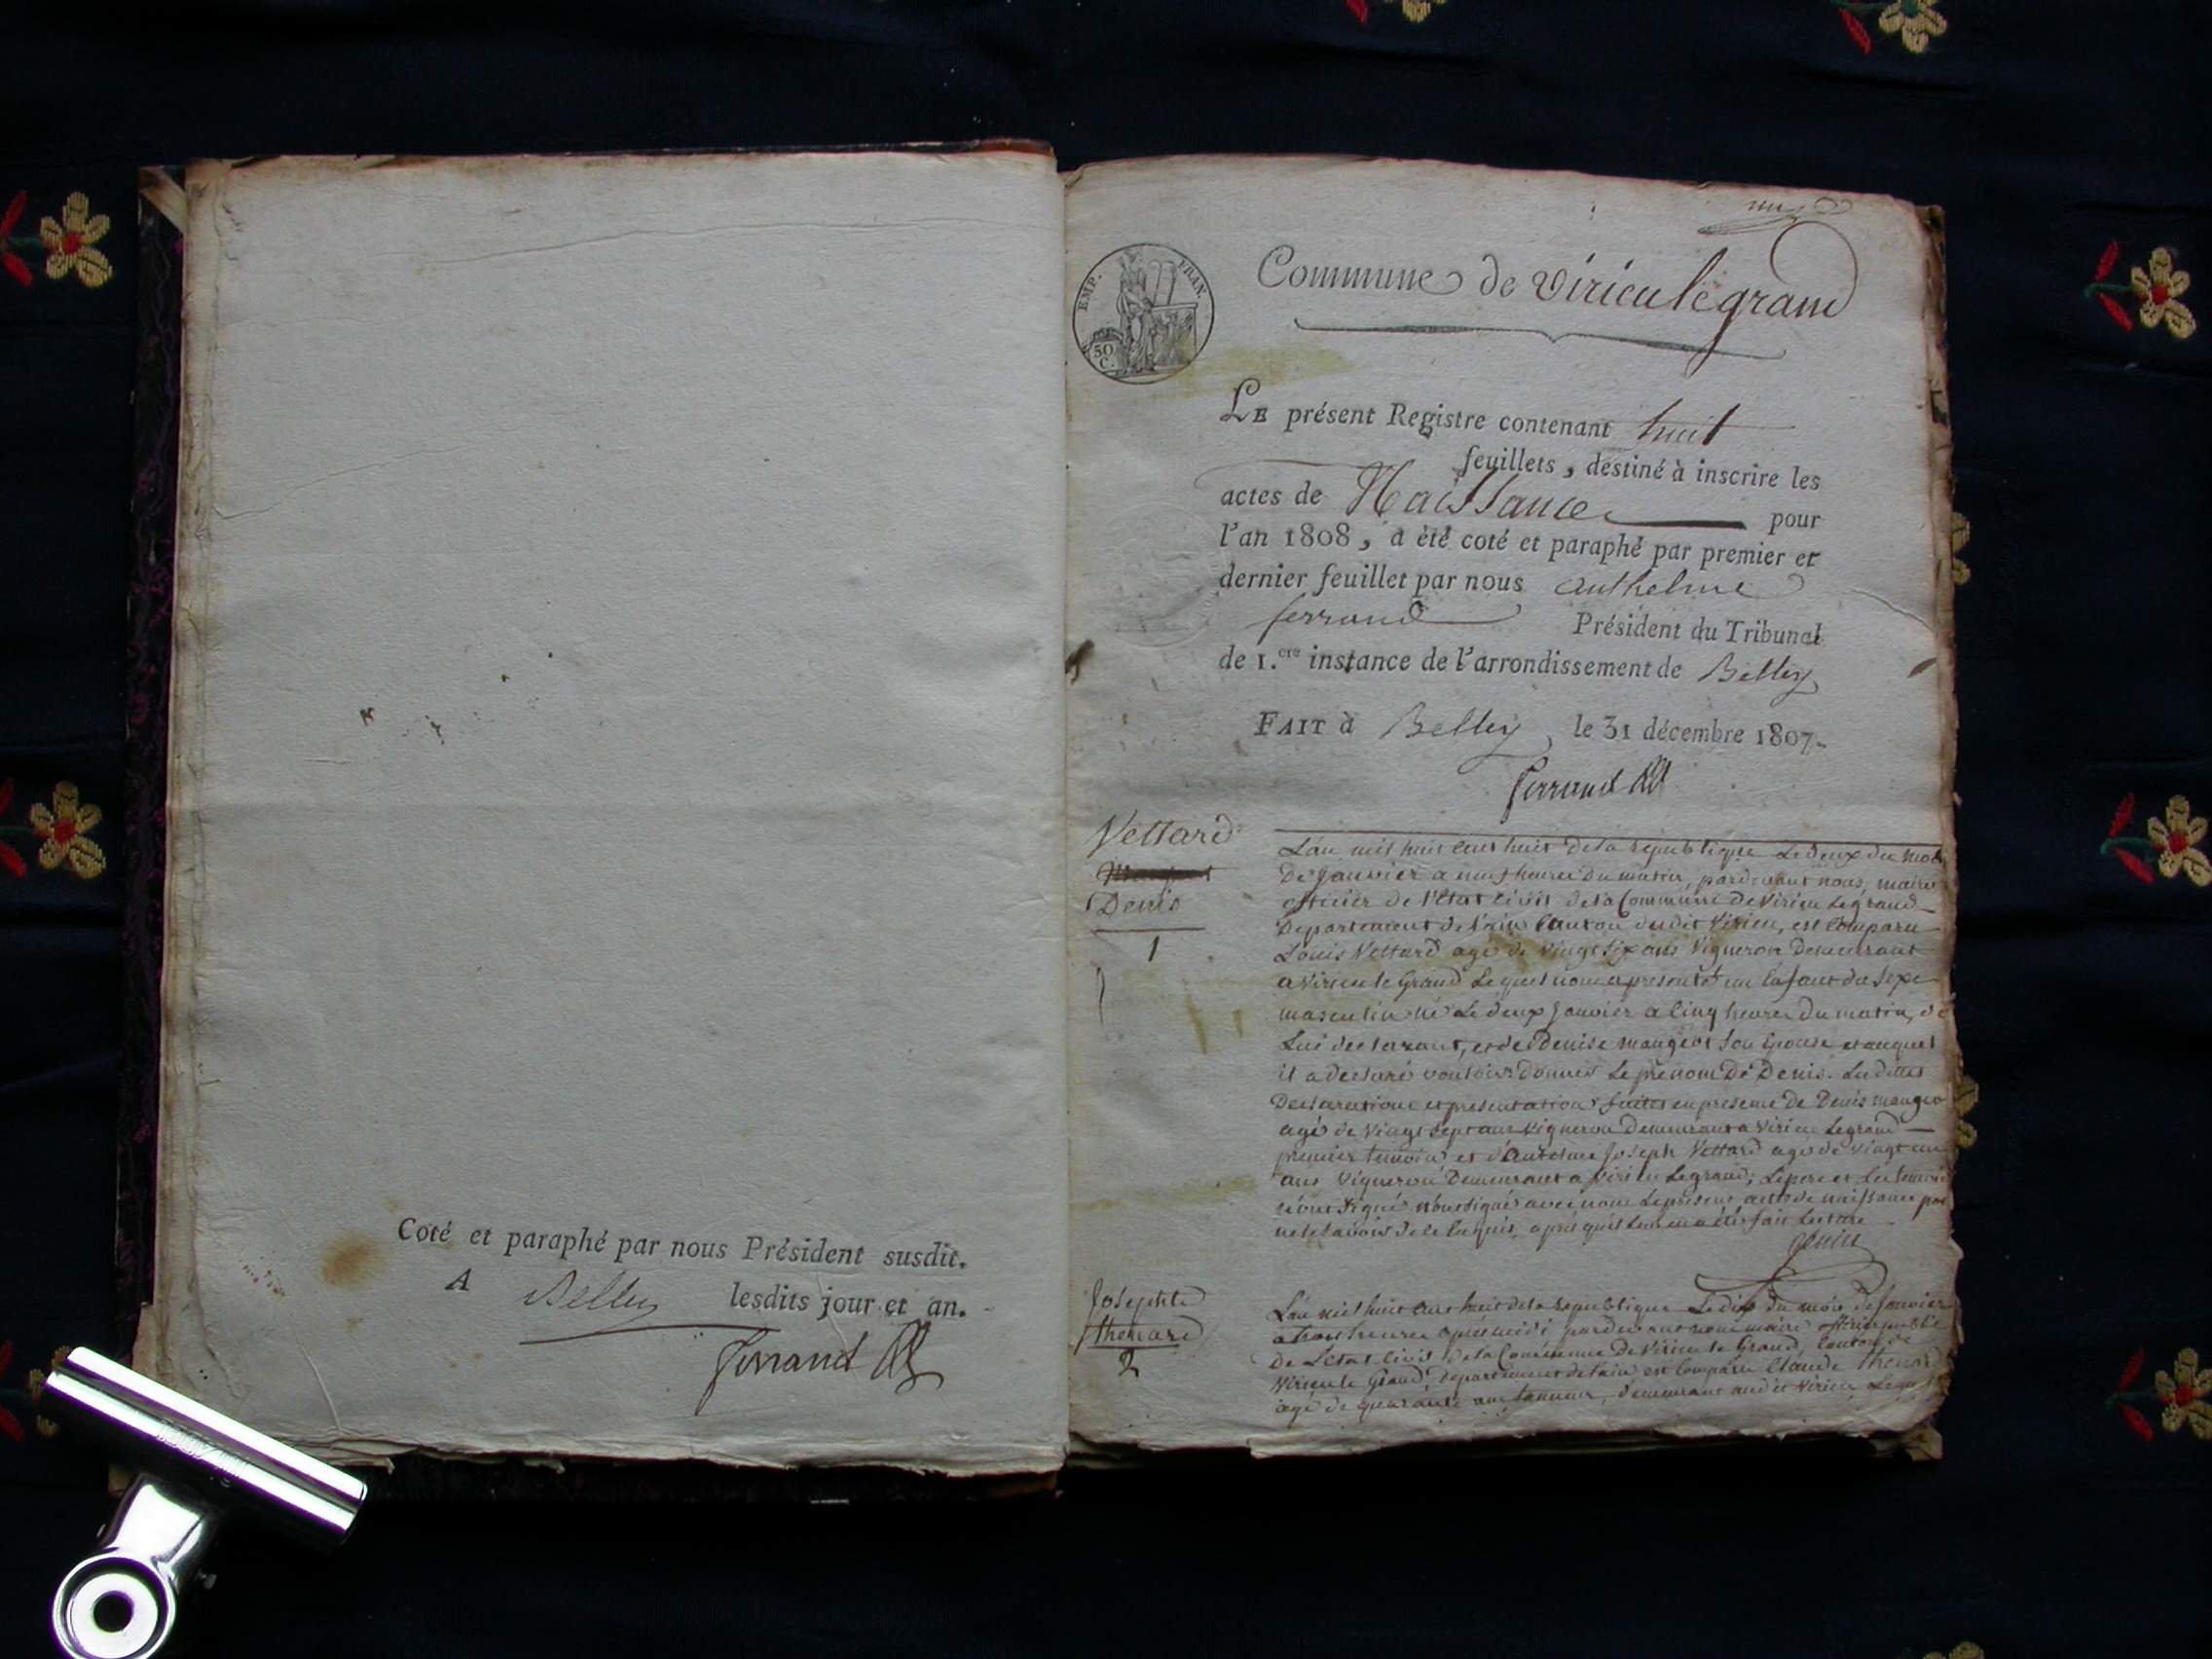 Coté et paraphé par nous Président susdit.
A Belley lesdits jour et an.
Ferrand
EMP. FRAN.
50 C.
Commune de virieu le grand
LE présent Registre contenant huit
feuillets, destiné à inscrire les
actes de Naissance pour
l'an 1808, a été coté et paraphé par premier et
dernier feuillet par nous anthelme
ferrand Président du Tribunal
de 1.ere instance de l'arrondissement de Belley
FAIT à Belley, le 31 décembre 1807.
Ferrand
Vettard
Denis
1
L'an mil huit cent huit de la republique le deux du mois
De janvier a neuf heures du matin, pardevant nous, maire
officier de l'état civil de la Commune de Virieu le grand
Departement de l'ain Canton dudit Virieu, est Comparu
Louis Vettard agé de vingt six ans Vigneron Demeurant
a Virieu le Grand Lequel nous a presenté un Enfant du Sexe
masculin né Le deux janvier a Cinq heures Du matin, de
Lui declarant, et de Denise mangeot Son Epouse et auquel
il a declaré vouloir Donner Le prenom De Denis. Lesdittes
Declarations et presentation faites en presence De Denis
agé de Vingt Sept ans Vigneron Demeurant a Virieu Legrand
premier temoin et d'Antelme Joseph Vettard agé de Vingt un
ans Vigneron Demeurant a Virieu Legrand; Le pere et Les temoins
n'ont Signé avec nous Le present acte de naissance pour
ne le Savoir de ce Enquis, apres qu'il Leur en a été fait Lecture
genin
Josephte
thenard
2
L'an mil huit cent huit de la republique Le dix du mois de Janvier
a trois heures après midi pardevant nous maire officier public
De L'état Civil De la Commune De Virieu le Grand, Canton de
Virieu le Grand Departement de l'ain est Comparu Claude thenard
agé de quarante ans tanneur, Demeurant audit Virieu